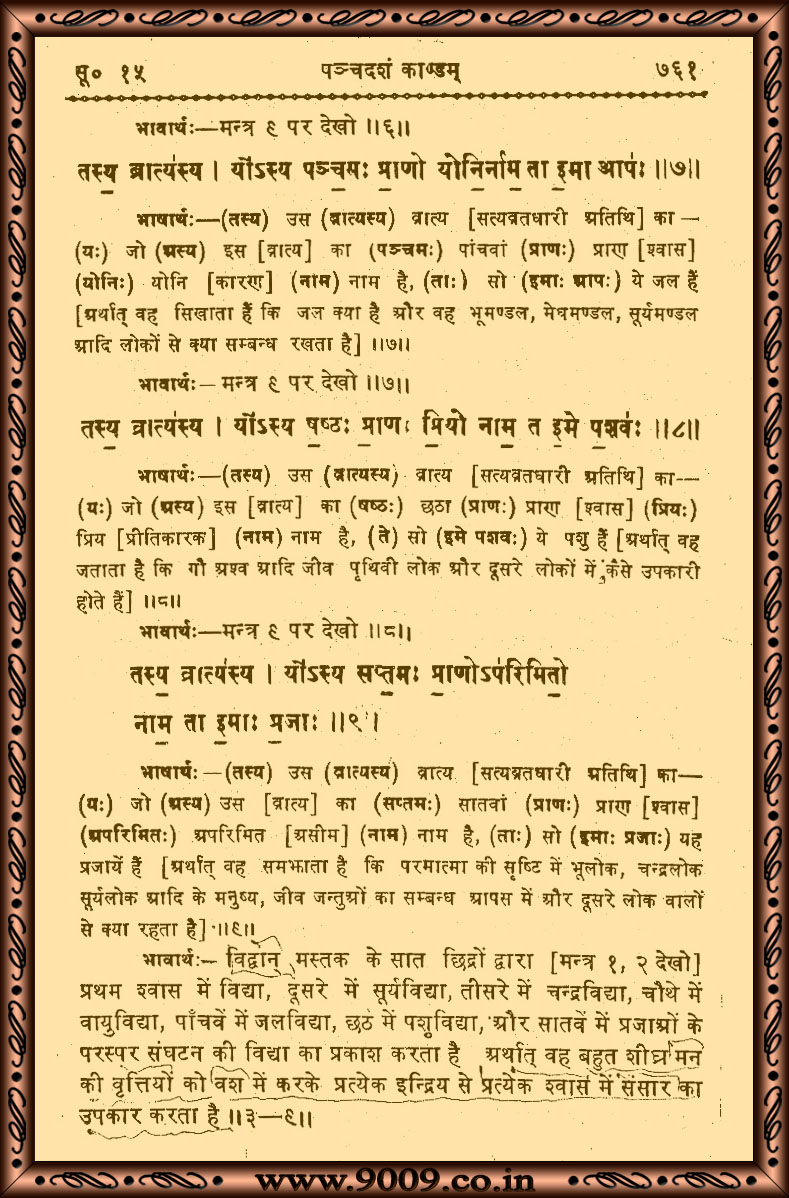 सू० १५ पञ्चदशं काण्डम् ७६१
भावार्थः—मन्त्र ९ पर देखो ॥६॥
तस्य॒ व्रात्य॑स्य । योऽ॑स्य पञ्च॒मः प्रा॒णो योनि॒र्नाम॒ ता इ॒मा आपः॑ ॥७॥
भाषार्थः—(तस्य) उस (व्रात्यस्य) व्रात्य [सत्यव्रतधारी अतिथि] का—
(यः) जो (अस्य) इस [व्रात्य] का (पञ्चमः) पांचवां (प्राणः) प्राण [श्वास]
(योनिः) योनि [कारण] (नाम) नाम है, (ताः) सो (इमाः आपः) ये जल हैं
[अर्थात् वह सिखाता हैं कि जल क्या है और वह भूमण्डल, मेघमण्डल, सूर्यमण्डल
आदि लोकों से क्या सम्बन्ध रखता है] ॥७॥
भावार्थः—मन्त्र ९ पर देखो ॥७॥
तस्य॒ व्रात्य॑स्य । योऽ॑स्य ष॒ष्ठः प्रा॒णः प्रि॒यो नाम॒ त इ॒मे प॒शवः॑ ॥८॥
भाषार्थः—(तस्य) उस (व्रात्यस्य) व्रात्य [सत्यव्रतधारी अतिथि] का—
(यः) जो (अस्य) इस [व्रात्य] का (षष्ठः) छठा (प्राणः) प्राण [श्वास] (प्रियः)
प्रिय [प्रीतिकारक] (नाम) नाम है, (ते) सो (इमे पशवः) ये पशु हैं [अर्थात् वह
जताता है कि गौ अश्व आदि जीव पृथिवी लोक और दूसरे लोकों में कैसे उपकारी
होते हैं] ॥८॥
भावार्थः—मन्त्र ९ पर देखो ॥८॥
तस्य॒ व्रात्य॑स्य । योऽ॑स्य सप्त॒मः प्रा॒णोऽप॑रिमितो॒
नाम॒ ता इ॒माः प्र॒जाः ॥९॥
भाषार्थः—(तस्य) उस (व्रात्यस्य) व्रात्य [सत्यव्रतधारी अतिथि] का—
(यः) जो (अस्य) उस [व्रात्य] का (सप्तमः) सातवां (प्राणः) प्राण [श्वास]
(अपरिमितः) अपरिमित [असीम] (नाम) नाम है, (ताः) सो (इमाः प्रजाः) यह
प्रजायें हैं [अर्थात् वह समझाता है कि परमात्मा की सृष्टि में भूलोक, चन्द्रलोक
सूर्यलोक आदि के मनुष्य, जीव जन्तुओं का सम्बन्ध आपस में और दूसरे लोक वालों
से क्या रहता है] ॥९॥
भावार्थः—विद्वान् मस्तक के सात छिद्रों द्वारा [मन्त्र १, २ देखो]
प्रथम श्वास में विद्या, दूसरे में सूर्यविद्या, तीसरे में चन्द्रविद्या, चौथे में
वायुविद्या, पाँचवें में जलविद्या, छठे में पशुविद्या, और सातवें में प्रजाओं के
परस्पर संघटन की विद्या का प्रकाश करता है अर्थात् वह बहुत शीघ्र मन
की वृत्तियों को वश में करके प्रत्येक इन्द्रिय से प्रत्येक श्वास में संसार का
उपकार करता है ॥३—९॥
www.9009.co.in